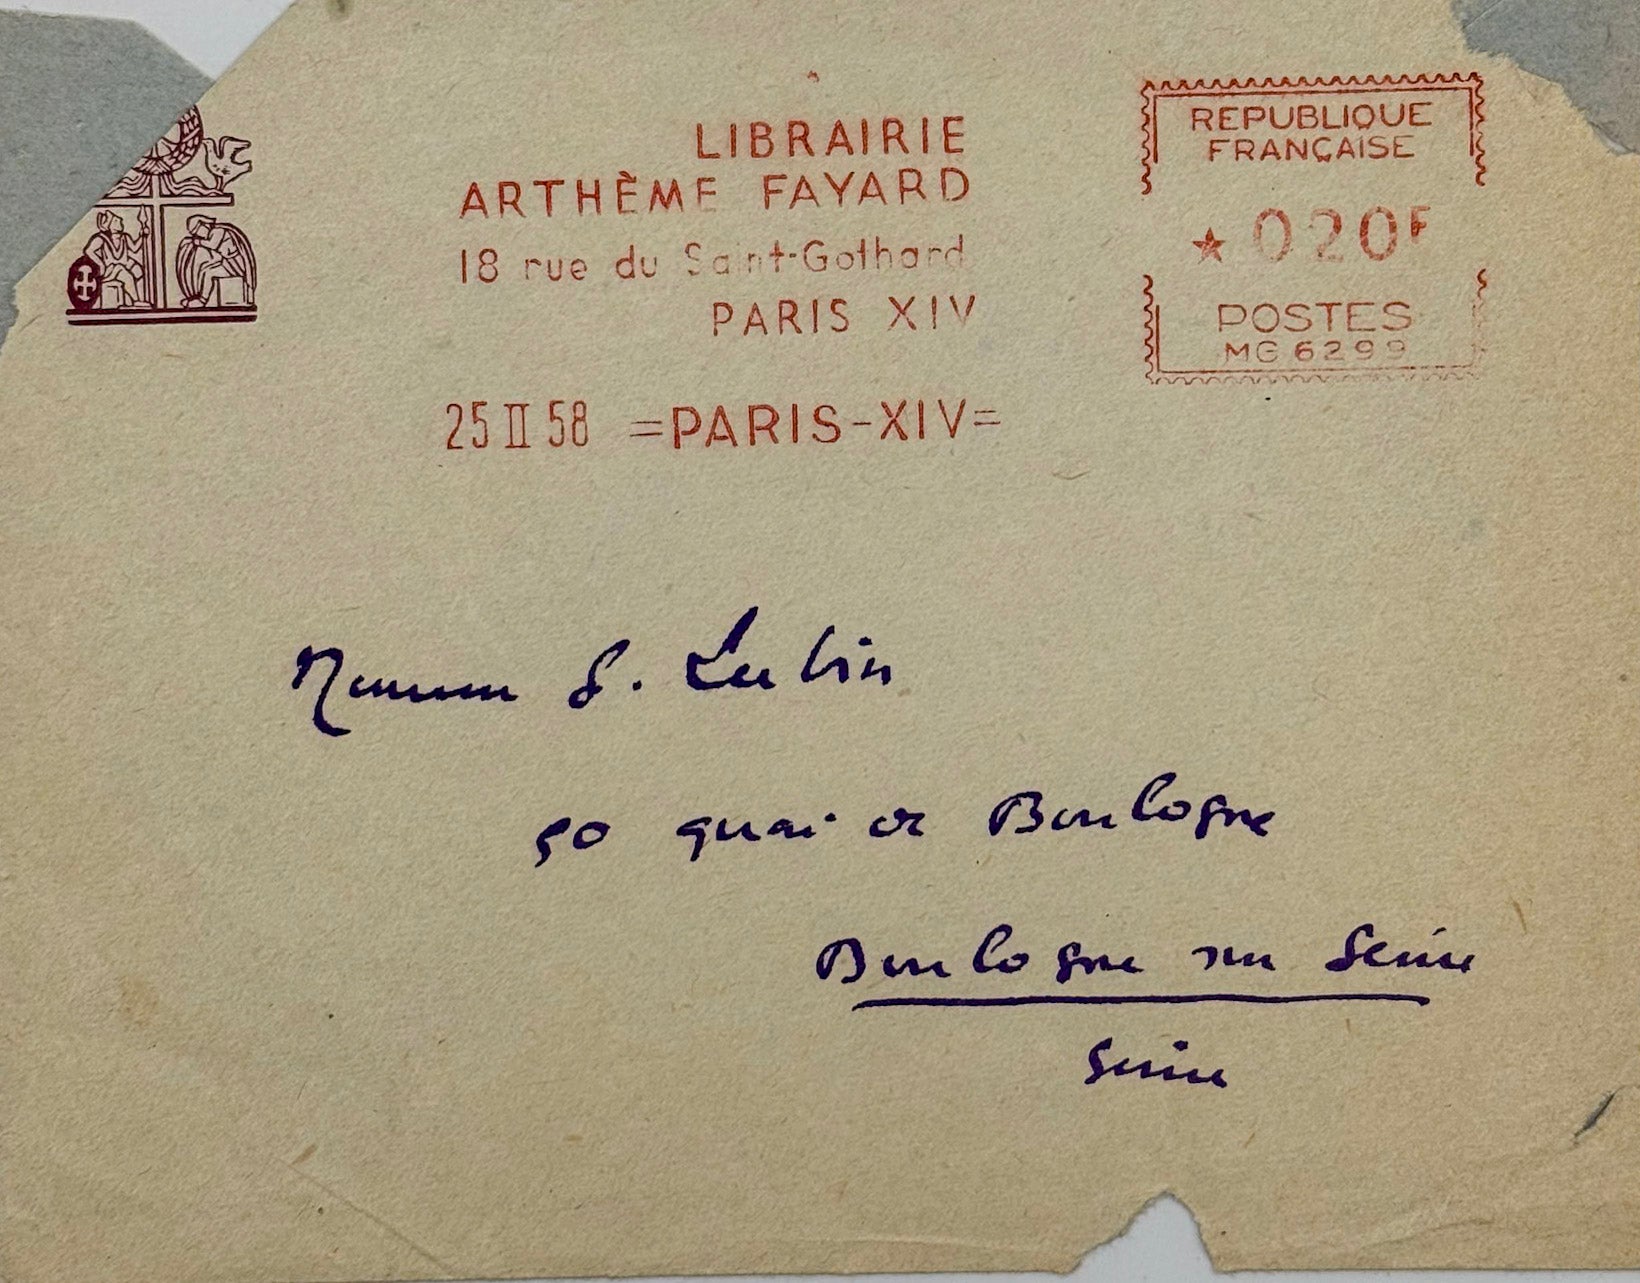 LIBRAIRIE
ARTHÈME FAYARD
18 rue du Saint-Gothard
PARIS XIV
REPUBLIQUE
FRANÇAISE
★ 020F
POSTES
MG 6299
25 II 58 =PARIS-XIV=
Monsieur G. Lubin
quai de Boulogne
Boulogne sur Seine
Seine